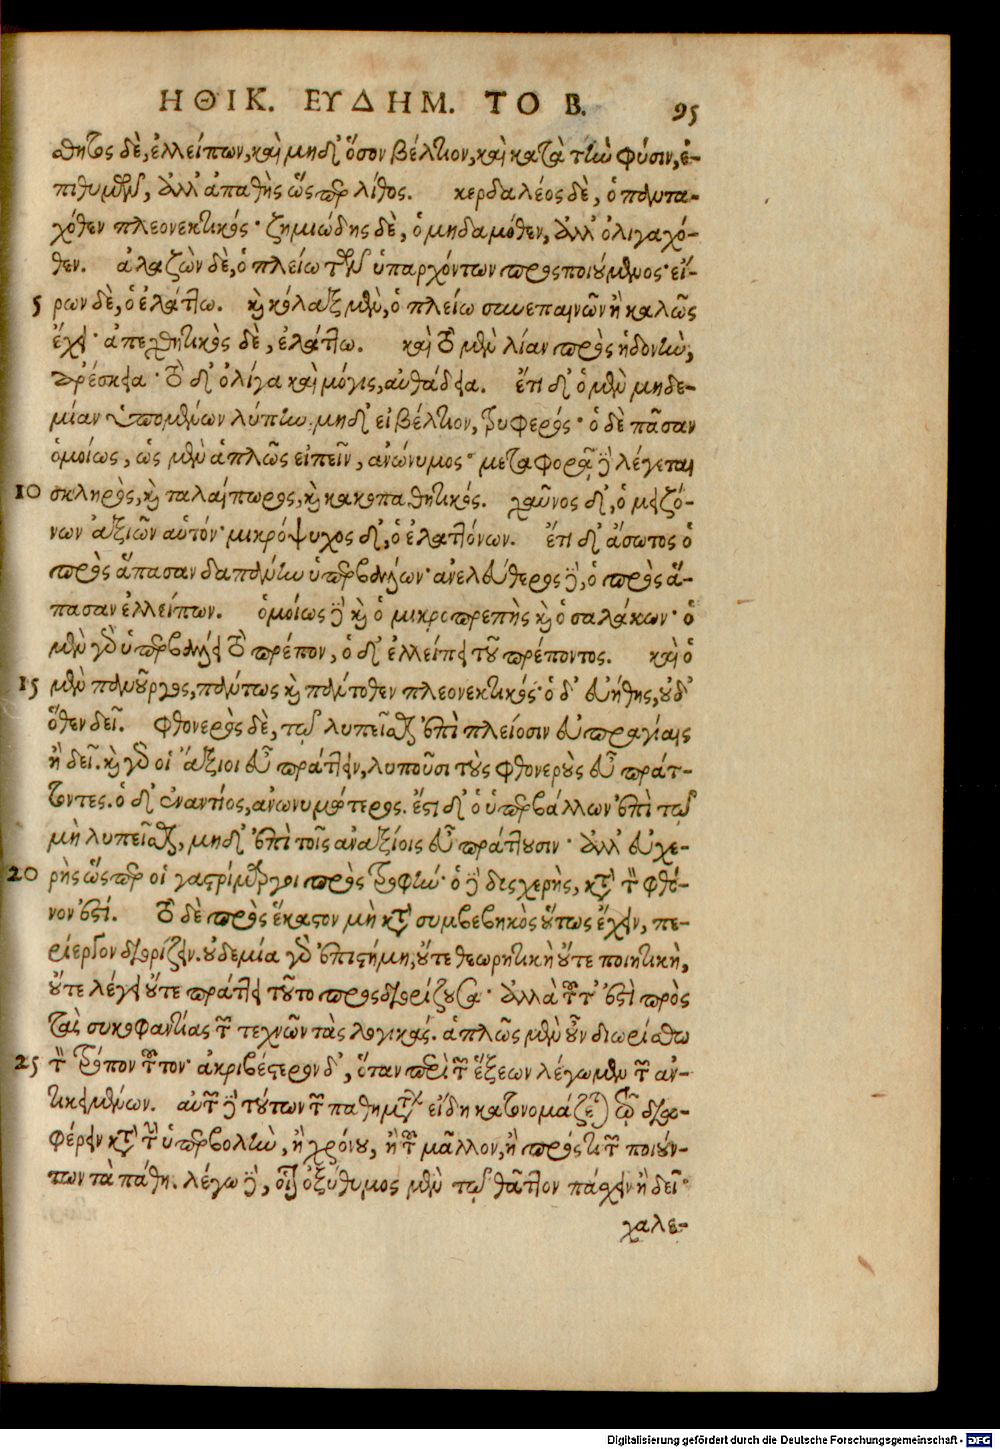 ΗΘΙΚ. ΕΥΔΗΜ. ΤΟ Β. 95
θητος δὲ, ἐλλείπων, καὶ μηδ' ὅσον βέλτιον, καὶ κατὰ τὴν φύσιν, ἐ-
πιθυμῶν, ἀλλ' ἀπαθὴς ὥσπερ λίθος. κερδαλέος δὲ, ὁ πάντα-
χόθεν πλεονεκτικός· ζημιώδης δὲ, ὁ μηδαμόθεν, ἀλλ' ὀλιγαχό-
θεν. ἀλαζὼν δὲ, ὁ πλείω τῶν ὑπαρχόντων προςποιούμενος· εἴ-
5 ρων δὲ, ὁ ἐλάττω. καὶ κόλαξ μὲν, ὁ πλείω συνεπαινῶν ἢ καλῶς
ἔχει· ἀπεχθητικὸς δὲ, ἐλάττω. καὶ τὸ μὲν λίαν πρὸς ἡδονὴν,
ἀρέσκεια· τὸ δ' ὀλίγα καὶ μόγις, αὐθάδεια. ἔτι δ' ὁ μὲν μηδε-
μίαν ὑπομένων λύπην, μηδ' εἰ βέλτιον, τρυφερός· ὁ δὲ πᾶσαν
ὁμοίως, ὡς μὲν ἁπλῶς εἰπεῖν, ἀνώνυμος· μεταφορᾷ δὲ λέγεται
10 σκληρὸς, καὶ ταλαίπωρος, καὶ κακοπαθητικός. χαῦνος δ', ὁ μειζό-
νων ἀξιῶν αὑτόν· μικρόψυχος δ', ὁ ἐλαττόνων. ἔτι δ' ἄσωτος ὁ
πρὸς ἅπασαν δαπάνην ὑπερβάλλων· ἀνελεύθερος δὲ, ὁ πρὸς ἅ-
πασαν ἐλλείπων. ὁμοίως δὲ καὶ ὁ μικροπρεπὴς καὶ ὁ σαλάκων· ὁ
μὲν γὰρ ὑπερβάλλει τὸ πρέπον, ὁ δ' ἐλλείπει τοῦ πρέποντος. καὶ ὁ
15 μὲν πανοῦργος, πάντως καὶ πάντοθεν πλεονεκτικός· ὁ δ' εὐήθης, οὐδ'
ὅθεν δεῖ. φθονερὸς δὲ, τῷ λυπεῖσθαι ἐπὶ πλείοσιν εὐπραγίαις
ἢ δεῖ. καὶ γὰρ οἱ ἄξιοι εὖ πράττειν, λυποῦσι τοὺς φθονεροὺς εὖ πράτ-
τοντες. ὁ δ' ἐναντίος, ἀνωνυμότερος. ἔστι δ' ὁ ὑπερβάλλων ἐπὶ τῷ
μὴ λυπεῖσθαι, μηδ' ἐπὶ τοῖς ἀναξίοις εὖ πράττουσιν· ἀλλ' εὐχε-
20 ρὴς ὥσπερ οἱ γαστρίμαργοι πρὸς τροφήν· ὁ δὲ δυςχερὴς, κατὰ τὸν φθό-
νον ἐστί. τὸ δὲ πρὸς ἕκαστον μὴ κατὰ συμβεβηκὸς οὕτως ἔχειν, πε-
ρίεργον διορίζειν. οὐδεμία γὰρ ἐπιστήμη, οὔτε θεωρητικὴ οὔτε ποιητικὴ,
οὔτε λέγει οὔτε πράττει τοῦτο προςδιορίζουσα· ἀλλὰ τοῦτ' ἐστὶ πρὸς
τὰς συκοφαντίας τῶν τεχνῶν τὰς λογικάς. ἁπλῶς μὲν οὖν διωρίσθω
25 τὸν τρόπον τοῦτον· ἀκριβέστερον δ', ὅταν περὶ τῶν ἕξεων λέγωμεν τῶν ἀν-
τικειμένων. αὐτῶν δὲ τούτων τῶν παθημάτων εἴδη κατονομάζεται τῷ δια-
φέρειν κατὰ τὴν ὑπερβολὴν, ἢ χρόνου, ἢ τοῦ μᾶλλον, ἢ πρός τι τῶν ποιούν-
των τὰ πάθη. λέγω δὲ, οἷον ὀξύθυμος μὲν τῷ θᾶττον πάσχειν ἢ δεῖ·
χαλε-
Digitalisierung gefördert durch die Deutsche Forschungsgemeinschaft - DFG